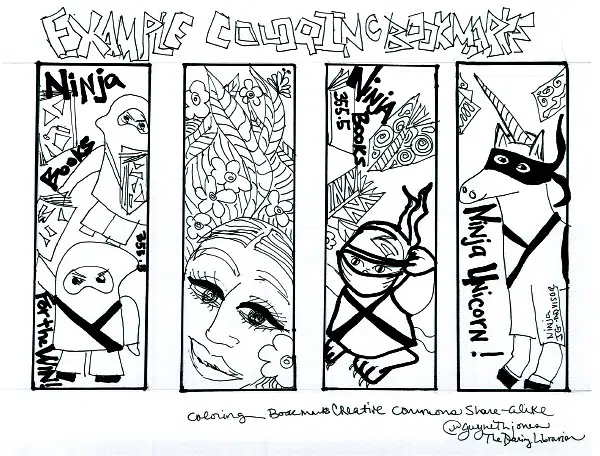 EXAMPLE COLORING BOOKMARKS
Ninja
Books
355.5
For the WIN!
Ninja
Books
355.5
Ninja Unicorn!
Ninja
Coloring Bookmarks Creative Commons Share-Alike
@gwynethjones
The Daring Librarian